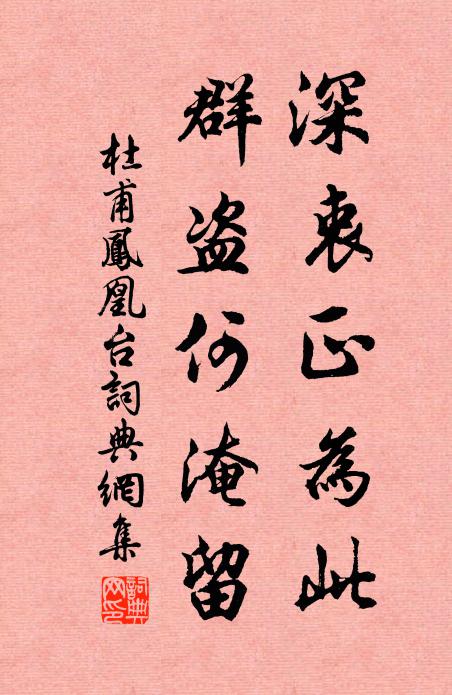 深衷正為此
群盜何淹留
杜甫鳳凰台詞典網集
詞典網印